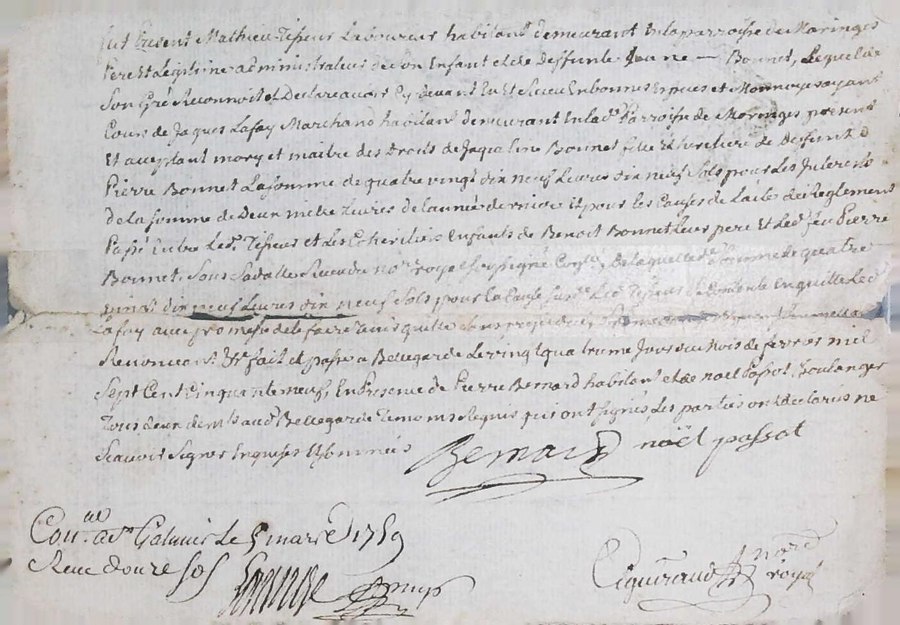 fut Present Mathieu Tisseur Laboureur habitant demeurant En la parroisse de Maringes
Pere et Legitime administrateur de son Enfant et de deffunte Jeanne — Bonnet, Lequel de
Son Gré Reconnoit et Declare avoir Cy devant Eu et Receu En bonnes Especes et Monnoye ayant
Cours de Jaques Lafay Marchand habitant demeurant En lad. Parroisse de Maringes present
Et acceptant mary et maitre des Droits de Jaqueline Bonnet fille et heritiere de Deffunt
Pierre Bonnet La somme de quatre vingt dix neuf Livres dix neuf Sols pour Les Interests
de la somme de Deux mille Livres de l'année derniere Et pour les Causes de l'acte de Reglement
Passé Entre Led. Tisseur et Les Enfants de Benoit Bonnet Leur pere Et Led. feu Pierre
Bonnet, Sous Sa datte Receu du no.re royal Soussigné De laquelle de. Somme de quatre
vingt dix neuf Livres dix neuf Sols pour la Cause Led. Tisseur Se Contente En quitte Led.
Lafay avec promesse de le faire tenir quitte
Renonceant &c fait et passé a Bellegarde Le vingt quatrieme Jour du Mois de fevrier mil
Sept Cent Cinquante neuf, En Presence de Pierre Bernard habitant et de noel Passot Boulanger
Tous deux dem.ts aud. Bellegarde Temoins Requis qui ont Signés Les parties ont declarés ne
Scavoir Signer Enquises et Sommées
Bernard noël passot
Con.lé a S.t Galmier Le 5 mars 1759
Receu douze sols
Ciguiraud no.re royal